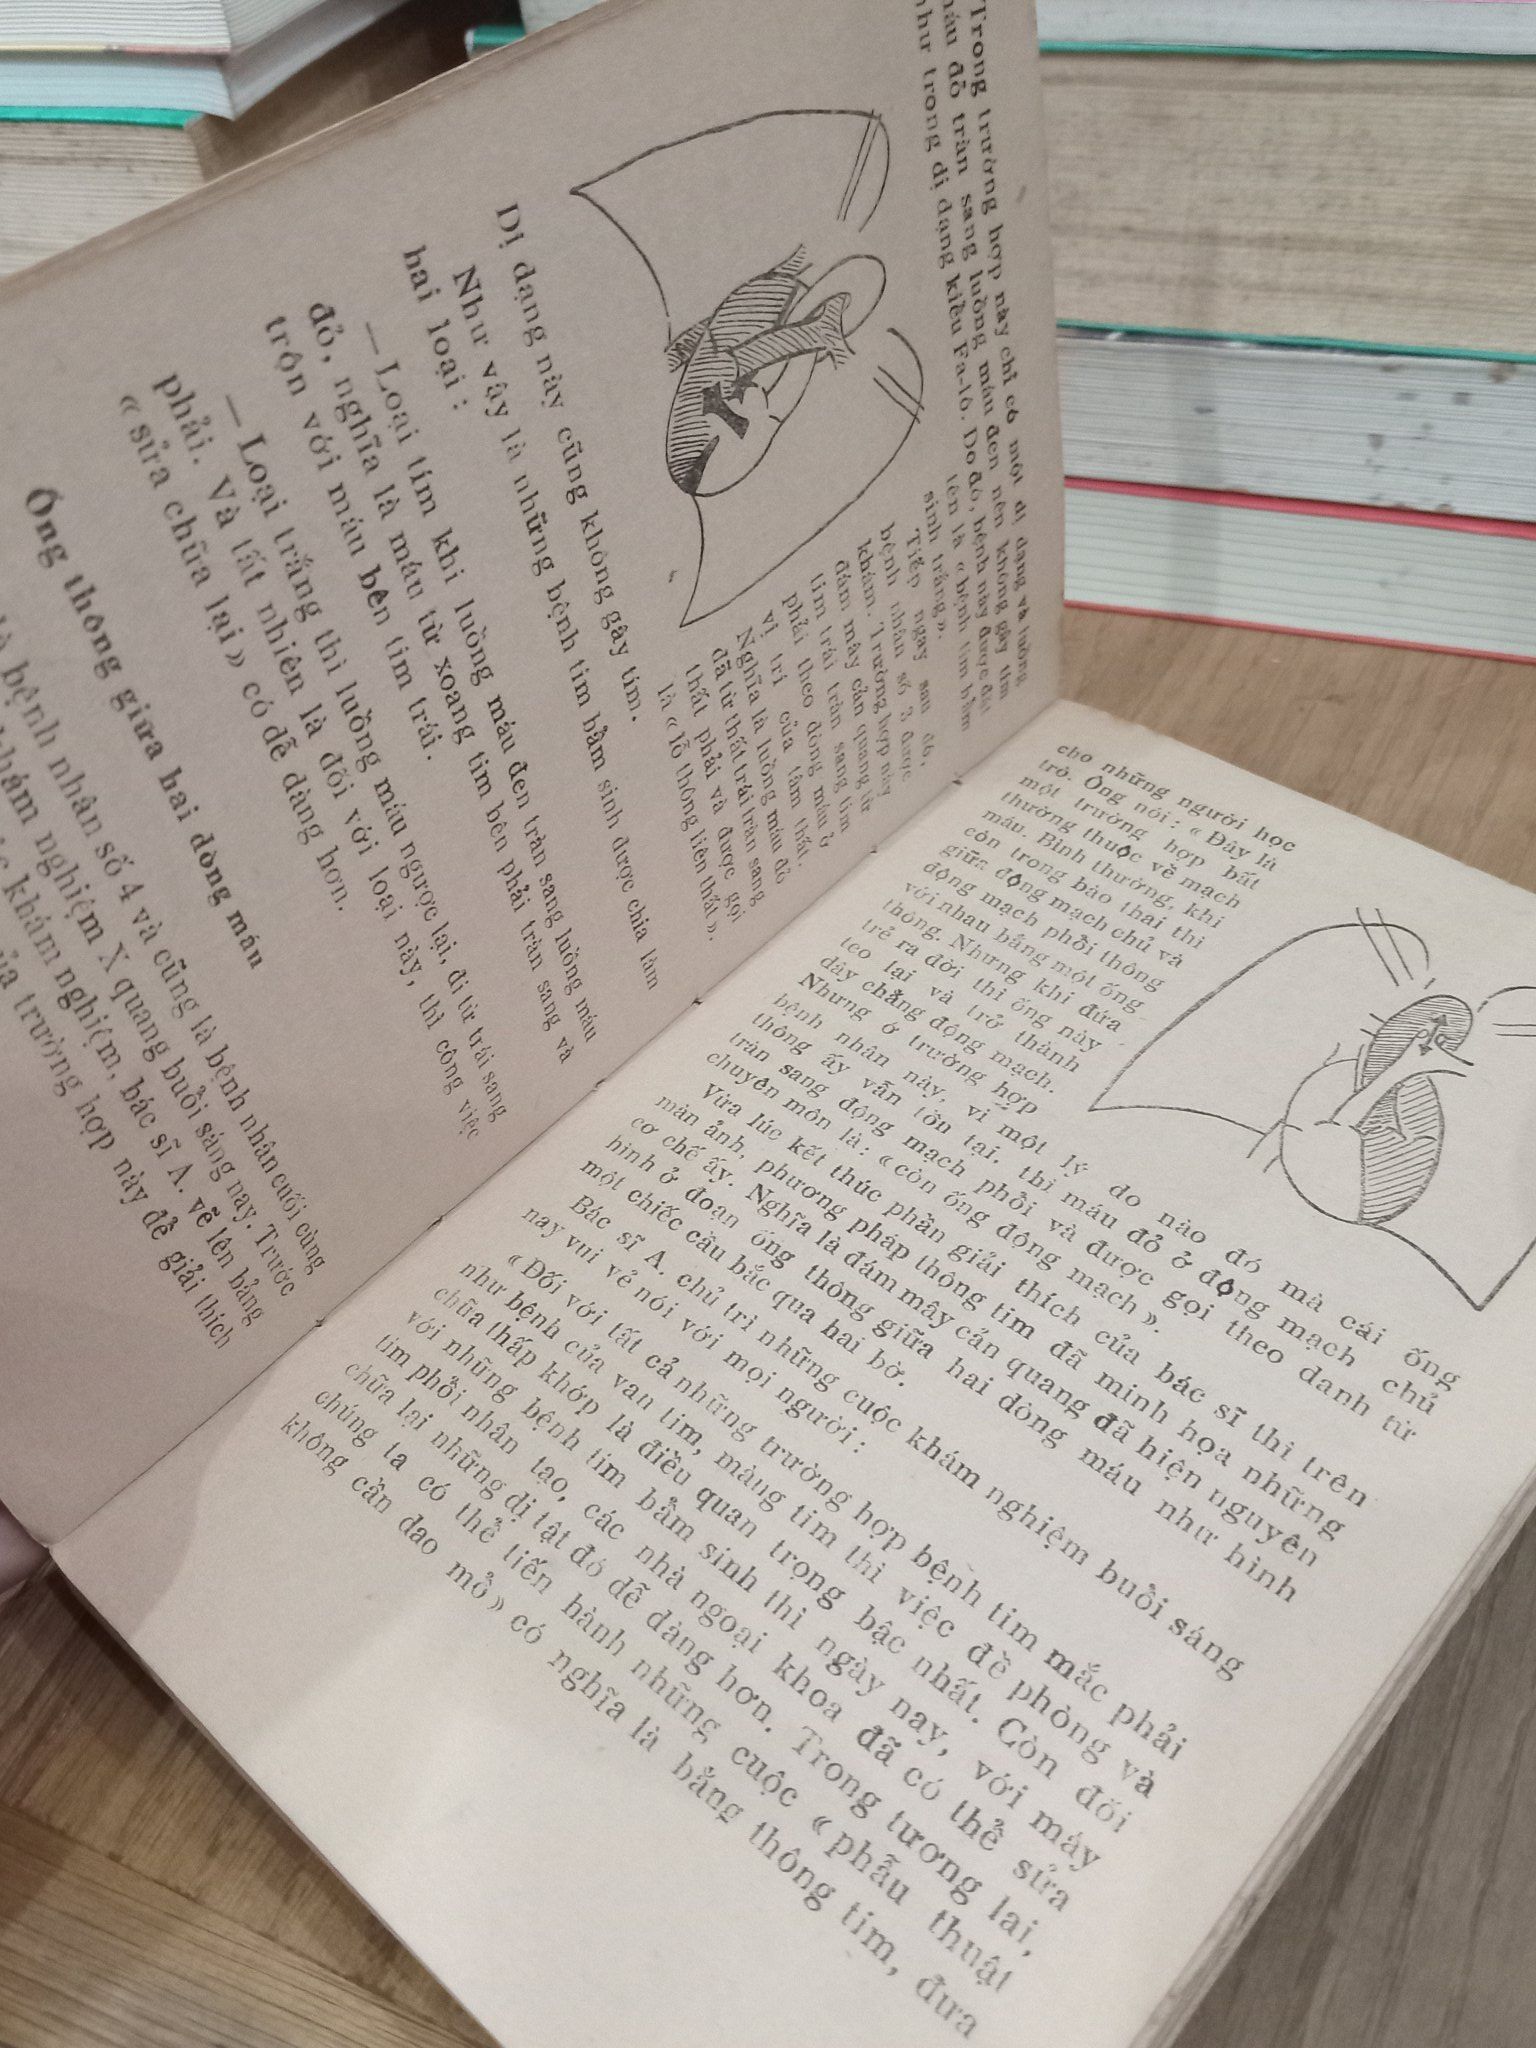 Trong trường hợp này chỉ có một dị dạng và luồng
máu đỏ tràn sang luồng máu đen nên không gây tím
như trong dị dạng kiểu Fa-lô. Do đó, bệnh này được đặt
tên là « bệnh tim bẩm
sinh trắng ».
Tiếp ngay sau đó,
bệnh nhân số 3 được
khám. Trường hợp này
đám mây cản quang từ
tim trái tràn sang tim
phải theo dòng máu ở
vị trí của tâm thất.
Nghĩa là luồng máu đỏ
đã từ thất trái tràn sang
thất phải và được gọi
là « lỗ thông liên thất ».
Dị dạng này cũng không gây tím.
Như vậy là những bệnh tim bẩm sinh được chia làm
hai loại :
— Loại tím khi luồng máu đen tràn sang luồng máu
đỏ, nghĩa là máu từ xoang tim bên phải tràn sang và
trộn với máu bên tim trái.
— Loại trắng thì luồng máu ngược lại, đi từ trái sang
phải. Và tất nhiên là đối với loại này, thì công việc
« sửa chữa lại » có dễ dàng hơn.
Ống thông giữa hai dòng máu
là bệnh nhân số 4 và cũng là bệnh nhân cuối cùng
khám nghiệm X quang buổi sáng nay. Trước
khám nghiệm, bác sĩ A. vẽ lên bảng
của trường hợp này để giải thích
cho những người học
trò. Ông nói : « Đây là
một trường hợp bất
thường thuộc về mạch
máu. Bình thường, khi
còn trong bào thai thì
giữa động mạch chủ và
động mạch phổi thông
với nhau bằng một ống
thông. Nhưng khi đứa
trẻ ra đời thì ống này
teo lại và trở thành
dây chằng động mạch.
Nhưng ở trường hợp
bệnh nhân này, vì một lý do nào đó mà cái ống
thông ấy vẫn tồn tại, thì máu đỏ ở động mạch chủ
tràn sang động mạch phổi và được gọi theo danh từ
chuyên môn là : « còn ống động mạch ».
Vừa lúc kết thúc phần giải thích của bác sĩ thì trên
màn ảnh, phương pháp thông tim đã minh họa những
cơ chế ấy. Nghĩa là đám mây cản quang đã hiện nguyên
hình ở đoạn ống thông giữa hai dòng máu như hình
một chiếc cầu bắc qua hai bờ.
Bác sĩ A. chủ trì những cuộc khám nghiệm buổi sáng
nay vui vẻ nói với mọi người :
« Đối với tất cả những trường hợp bệnh tim mắc phải
như bệnh của van tim, màng tim thì việc đề phòng và
chữa thấp khớp là điều quan trọng bậc nhất. Còn đối
với những bệnh tim bẩm sinh thì ngày nay, với máy
tim phổi nhân tạo, các nhà ngoại khoa đã có thể sửa
chữa lại những dị tật đó dễ dàng hơn. Trong tương lai,
chúng ta có thể tiến hành những cuộc « phẫu thuật
không cần dao mổ » có nghĩa là bằng thông tim, đưa